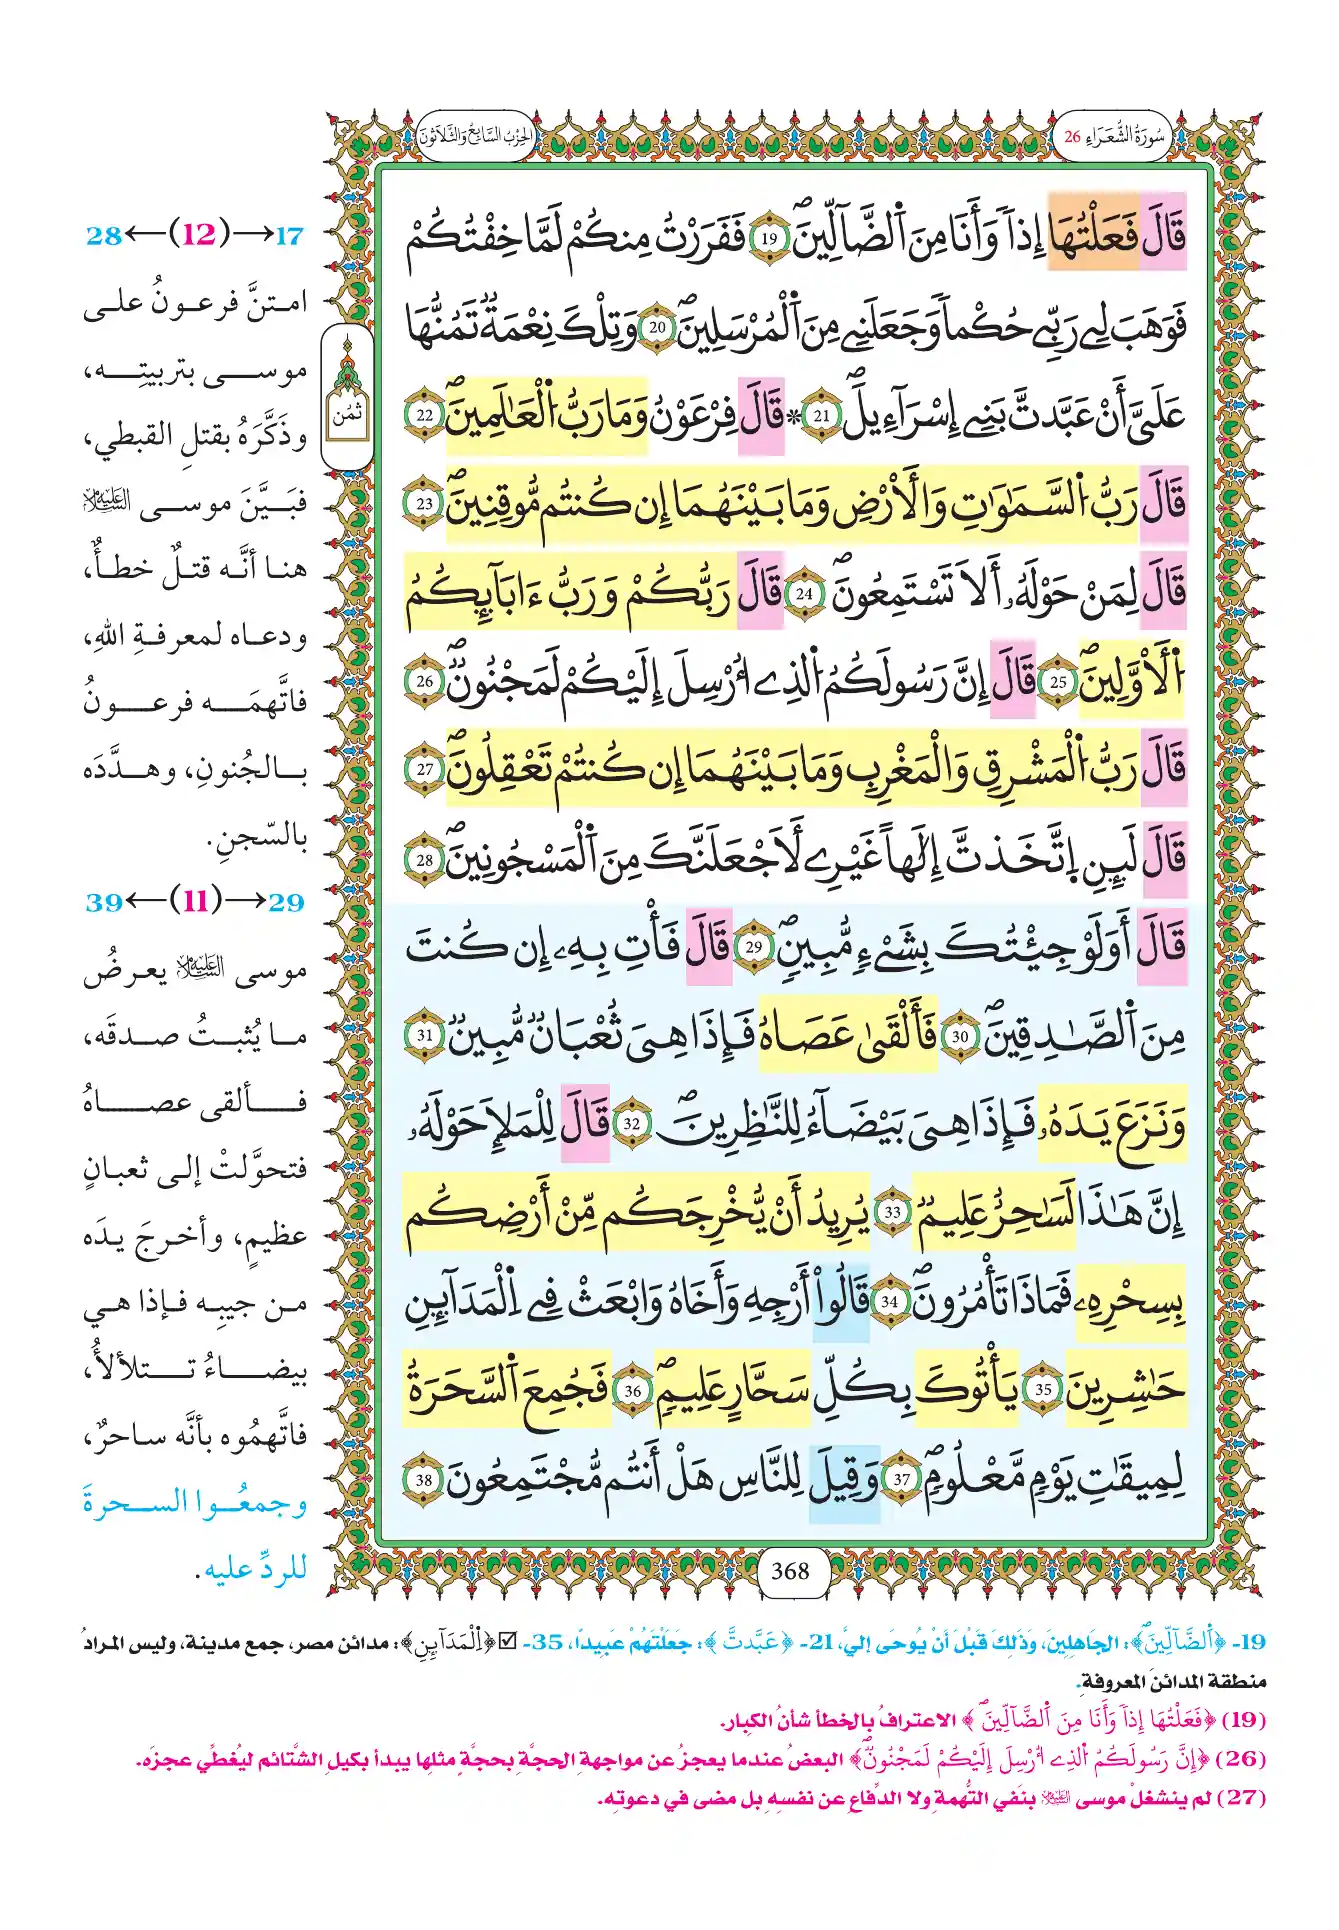 سُورَةُ الشُّعَرَاءِ 26
الحِزْبُ السَّابِعُ وَالثَّلَاثُونَ
قَالَ فَعَلْتُهَا إِذاٗ وَأَنَا مِنَ اَ۬لضَّآلِّينَۖ 19 فَفَرَرْتُ مِنكُمْ لَمَّا خِفْتُكُمْ
فَوَهَبَ لِے رَبِّے حُكْماٗ وَجَعَلَنِے مِنَ اَ۬لْمُرْسَلِينَۖ 20 وَتِلْكَ نِعْمَةٞ تَمُنُّهَا
عَلَيَّ أَنْ عَبَّدتَّ بَنِے إِسْرَآءِيلَۖ 21 * قَالَ فِرْعَوْنُ وَمَا رَبُّ اُ۬لْعَٰلَمِينَۖ 22
قَالَ رَبُّ اُ۬لسَّمَٰوَٰتِ وَالْأَرْضِ وَمَا بَيْنَهُمَا إِن كُنتُم مُّوقِنِينَۖ 23
قَالَ لِمَنْ حَوْلَهُۥ أَلَا تَسْتَمِعُونَۖ 24 قَالَ رَبُّكُمْ وَرَبُّ ءَابَآئِكُمُ
اُ۬لْأَوَّلِينَۖ 25 قَالَ إِنَّ رَسُولَكُمُ اُ۬لذِے أُرْسِلَ إِلَيْكُمْ لَمَجْنُونٞۖ 26
قَالَ رَبُّ اُ۬لْمَشْرِقِ وَالْمَغْرِبِ وَمَا بَيْنَهُمَا إِن كُنتُمْ تَعْقِلُونَۖ 27
قَالَ لَئِنِ اِ۪تَّخَذتَّ إِلَٰهاً غَيْرِے لَأَجْعَلَنَّكَ مِنَ اَ۬لْمَسْجُونِينَۖ 28
قَالَ أَوَلَوْ جِئْتُكَ بِشَےْءٖ مُّبِينٖۖ 29 قَالَ فَأْتِ بِهِۦ إِن كُنتَ
مِنَ اَ۬لصَّٰدِقِينَۖ 30 فَأَلْقَىٰ عَصَاهُ فَإِذَا هِيَ ثُعْبَانٞ مُّبِينٞ 31
وَنَزَعَ يَدَهُۥ فَإِذَا هِيَ بَيْضَآءُ لِلنَّٰظِرِينَۖ 32 قَالَ لِلْمَلَإِ حَوْلَهُۥ
إِنَّ هَٰذَا لَسَٰحِرٌ عَلِيمٞ 33 يُرِيدُ أَنْ يُّخْرِجَكُم مِّنْ أَرْضِكُم
بِسِحْرِهِۦ فَمَاذَا تَأْمُرُونَۖ 34 قَالُواْ أَرْجِهِ وَأَخَاهُ وَابْعَثْ فِے اِ۬لْمَدَآئِنِ
حَٰشِرِينَ 35 يَأْتُوكَ بِكُلِّ سَحَّارٍ عَلِيمٖۖ 36 فَجُمِعَ اَ۬لسَّحَرَةُ
لِمِيقَٰتِ يَوْمٖ مَّعْلُومٖۖ 37 وَقِيلَ لِلنَّاسِ هَلْ أَنتُم مُّجْتَمِعُونَ 38
368
ثُمُن
17→(12)←28
امتنَّ فرعونُ على
موسى بتربيتِه،
وذَكَّرَهُ بقتلِ القبطي،
فبَيَّنَ موسى عليه السلام
هنا أنَّه قتلٌ خطأٌ،
ودعاه لمعرفةِ اللهِ،
فاتَّهمَه فرعونُ
بالجُنونِ، وهدَّدَه
بالسّجنِ.
29→(11)←39
موسى عليه السلام يعرضُ
ما يُثبتُ صدقَه،
فألقى عصاهُ
فتحوَّلتْ إلى ثعبانٍ
عظيمٍ، وأخرجَ يدَه
من جيبِه فإذا هي
بيضاءُ تتلألأُ،
فاتَّهمُوه بأنَّه ساحرٌ،
وجمعُوا السحرةَ
للردِّ عليه.
19- ﴿اَ۬لضَّآلِّينَۖ﴾: الجَاهِلِينَ، وَذَلِكَ قَبْلَ أنْ يُوحَى إليَّ، 21- ﴿عَبَّدتَّ﴾: جَعَلْتَهُمْ عَبِيدًا، 35- ☑﴿اِ۬لْمَدَآئِنِ﴾: مدائن مصر، جمع مدينة، وليس المرادُ
منطقة المدائنَ المعروفةِ.
(19) ﴿فَعَلْتُهَا إِذاٗ وَأَنَا مِنَ اَ۬لضَّآلِّينَۖ﴾ الاعترافُ بالخطأ شأنُ الكبار.
(26) ﴿إِنَّ رَسُولَكُمُ اُ۬لذِے أُرْسِلَ إِلَيْكُمْ لَمَجْنُونٞۖ﴾ البعضُ عندما يعجزُ عن مواجهةِ الحجَّةِ بحجَّةٍ مثلِها يبدأ بكيلِ الشَّتائم ليُغطِّي عجزَه.
(27) لم ينشغلْ موسى عليه السلام بنَفي التُّهمةِ ولا الدِّفاعِ عن نفسِهِ بل مضى في دعوتِه.